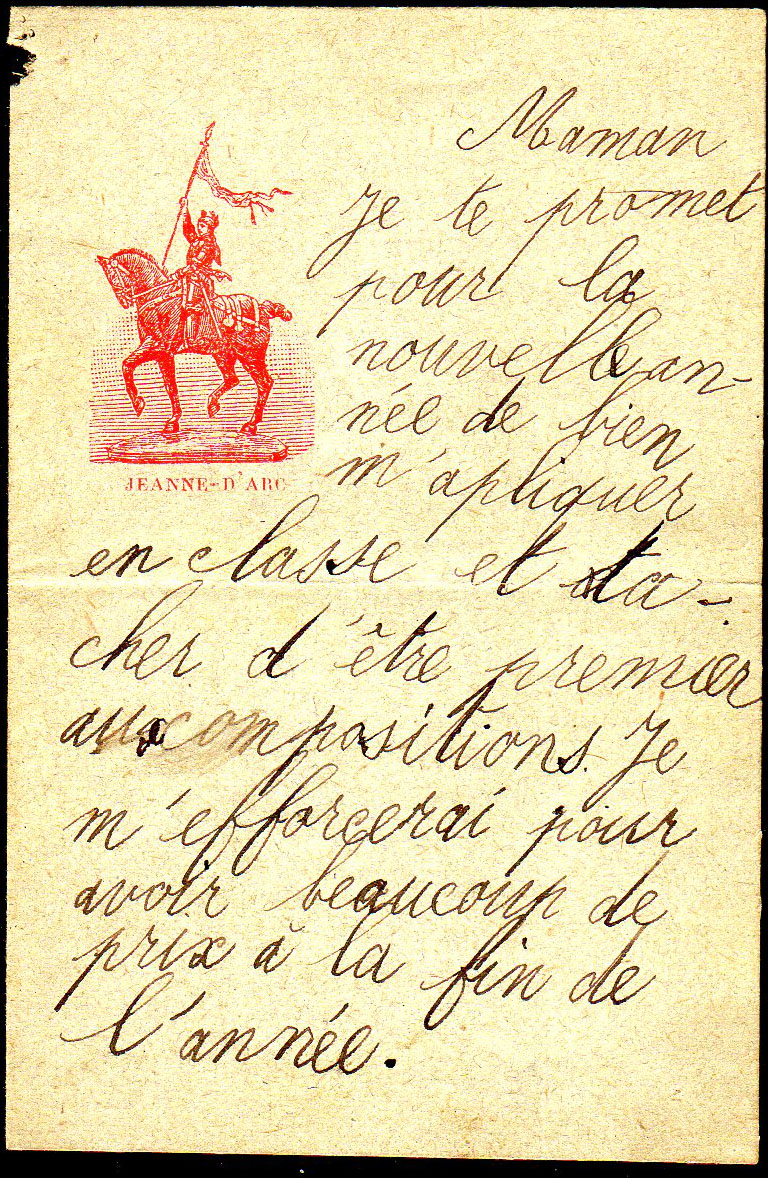 Maman
Je te promet
pour la
nouvelle an-
née de bien
m'apliquer
JEANNE-D'ARC
en classe et ta-
cher d'être premier
aux compositions. Je
m'efforcerai pour
avoir beaucoup de
prix à la fin de
l'année.